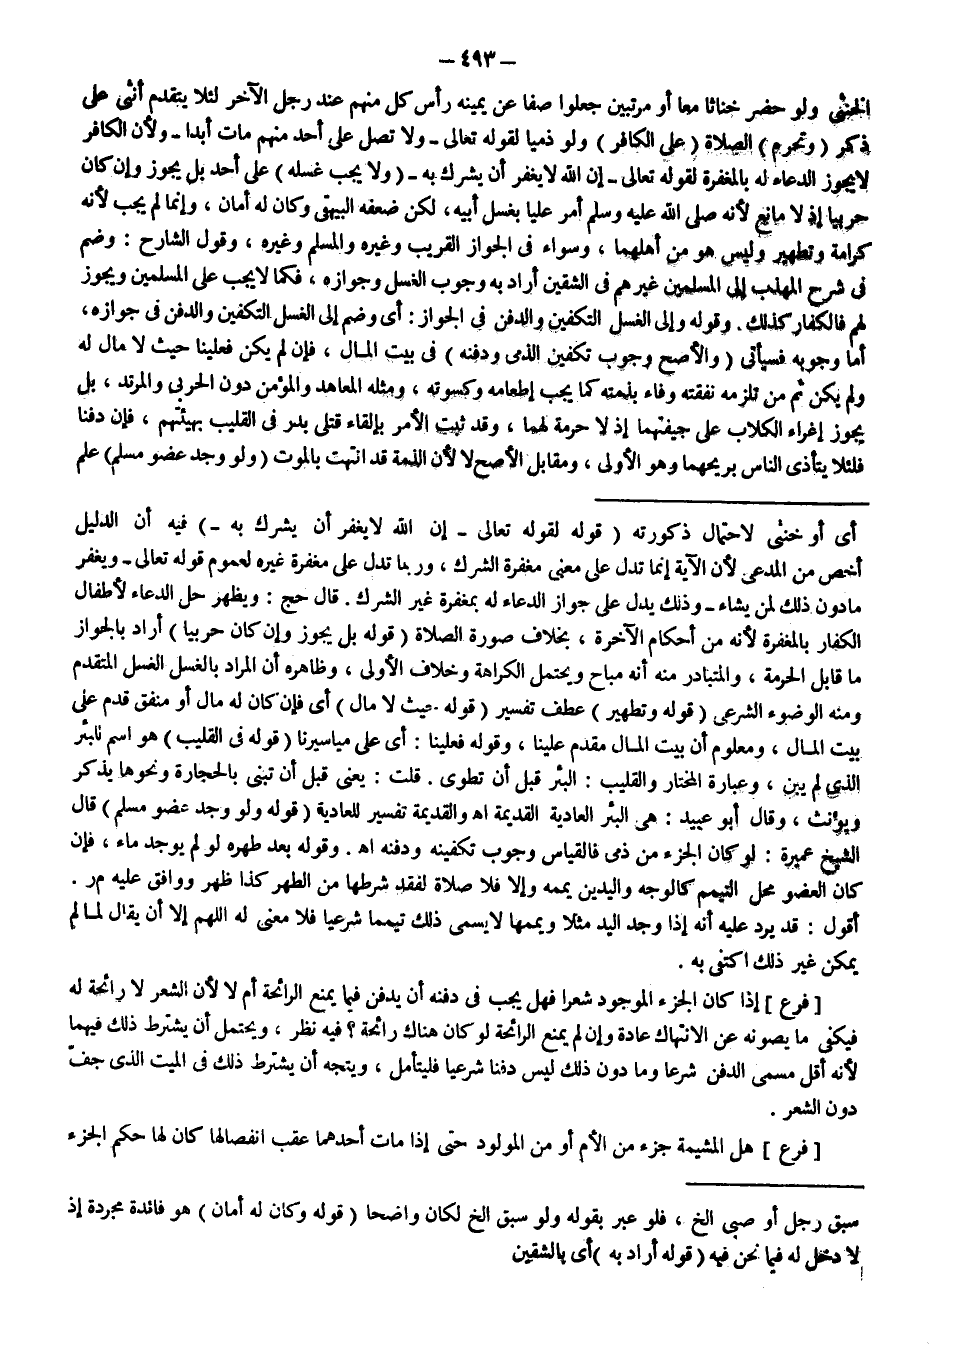 — ٤٩٣ —
الخنثى ولو حضر خناثا معا أو مرتبين جعلوا صفا عن يمينه رأس كل منهم عند رجل الآخر لئلا يتقدم أنثى على
ذكر ( وتحرم ) الصلاة ( على الكافر ) ولو ذميا لقوله تعالى ـ ولا تصل على أحد منهم مات أبدا ـ ولأن الكافر
لايجوز الدعاء له بالمغفرة لقوله تعالى ـ إن الله لايغفر أن يشرك به ـ ( ولا يجب غسله ) على أحد بل يجوز وإن كان
حربيا إذ لا مانع لأنه صلى الله عليه وسلم أمر عليا بغسل أبيه، لكن ضعفه البيهقى وكان له أمان ، وإنما لم يجب لأنه
كرامة وتطهير وليس هو من أهلهما ، وسواء فى الجواز القريب وغيره والمسلم وغيره ، وقول الشارح : وضم
فى شرح المهذب إلى المسلمين غيرهم فى الشقين أراد به وجوب الغسل وجوازه ، فكما لايجب على المسلمين ويجوز
لهم فالكفار كذلك . وقوله وإلى الغسل التكفين والدفن فى الجواز : أى وضم إلى الغسل التكفين والدفن فى جوازه،
أما وجوبه فسيأتى ( والأصح وجوب تكفين الذمى ودفنه ) فى بيت المـال ، فإن لم يكن فعلينا حيث لا مال له
ولم يكن ثم من تلزمه نفقته وفاء بذمته كما يجب إطعامه وكسوته ، ومثله المعاهد والمؤمن دون الحربى والمرتد ، بل
يجوز إغراء الكلاب على جيفتهما إذ لا حرمة لهما ، وقد ثبت الأمر بإلقاء قتلى بدر فى القليب بهيئتهم ، فإن دفنا
فلئلا يتأذى الناس بريحهما وهو الأولى ، ومقابل الأصح لا لأن الذمة قد انتهت بالموت ( ولو وجد عضو مسلم) علم
أى أو خنثى لاحتمال ذكورته ( قوله لقوله تعالى ـ إن الله لايغفر أن يشرك به ـ ) فيه أن الدليل
أخص من المدعى لأن الآية إنما تدل على معنى مغفرة الشرك ، وربما تدل على مغفرة غيره لعموم قوله تعالى ـ ويغفر
مادون ذلك لمن يشاء ـ وذلك يدل على جواز الدعاء له بمغفرة غير الشرك . قال حج : ويظهر حل الدعاء لأطفال
الكفار بالمغفرة لأنه من أحكام الآخرة ، بخلاف صورة الصلاة ( قوله بل يجوز وإن كان حربيا ) أراد بالجواز
ما قابل الحرمة ، والمتبادر منه أنه مباح ويحتمل الكراهة وخلاف الأولى ، وظاهره أن المراد بالغسل الغسل المتقدم
ومنه الوضوء الشرعى ( قوله وتطهير ) عطف تفسير ( قوله حيث لا مال ) أى فإن كان له مال أو منفق قدم على
بيت المـال ، ومعلوم أن بيت المـال مقدم علينا ، وقوله فعلينا : أى على مياسيرنا ( قوله فى القليب ) هو اسم للبئر
الذى لم يبن ، وعبارة المختار والقليب : البئر قبل أن تطوى . قلت : يعنى قبل أن تبنى بالحجارة ونحوها يذكر
ويؤنث ، وقال أبو عبيد : هى البئر العادية القديمة اه والقديمة تفسير للعادية ( قوله ولو وجد عضو مسلم ) قال
الشيخ عميرة : لو كان الجزء من ذمى فالقياس وجوب تكفينه ودفنه اه . وقوله بعد طهره لو لم يوجد ماء ، فإن
كان العضو محل التيمم كالوجه واليدين يممه وإلا فلا صلاة لفقد شرطها من الطهر كذا ظهر ووافق عليه مر .
أقول : قد يرد عليه أنه إذا وجد اليد مثلا ويممها لايسمى ذلك تيمما شرعيا فلا معنى له اللهم إلا أن يقال لمـا لم
يمكن غير ذلك اكتفى به .
[ فرع ] إذا كان الجزء الموجود شعرا فهل يجب فى دفنه أن يدفن فيما يمنع الرائحة أم لا لأن الشعر لا رائحة له
فيكفى ما يصونه عن الانتهاك عادة وإن لم يمنع الرائحة لو كان هناك رائحة ؟ فيه نظر ، ويحتمل أن يشترط ذلك فيهما
لأنه أقل مسمى الدفن شرعا وما دون ذلك ليس دفنا شرعيا فليتأمل ، ويتجه أن يشترط ذلك فى الميت الذى جفّ
دون الشعر .
[ فرع ] هل المشيمة جزء من الأم أو من المولود حتى إذا مات أحدهما عقب انفصالها كان لها حكم الجزء
سبق رجل أو صبى الخ ، فلو عبر بقوله ولو سبق الخ لكان واضحا ( قوله وكان له أمان ) هو فائدة مجردة إذ
لا دخل له فيما نحن فيه ( قوله أراد به ) أى بالشقين